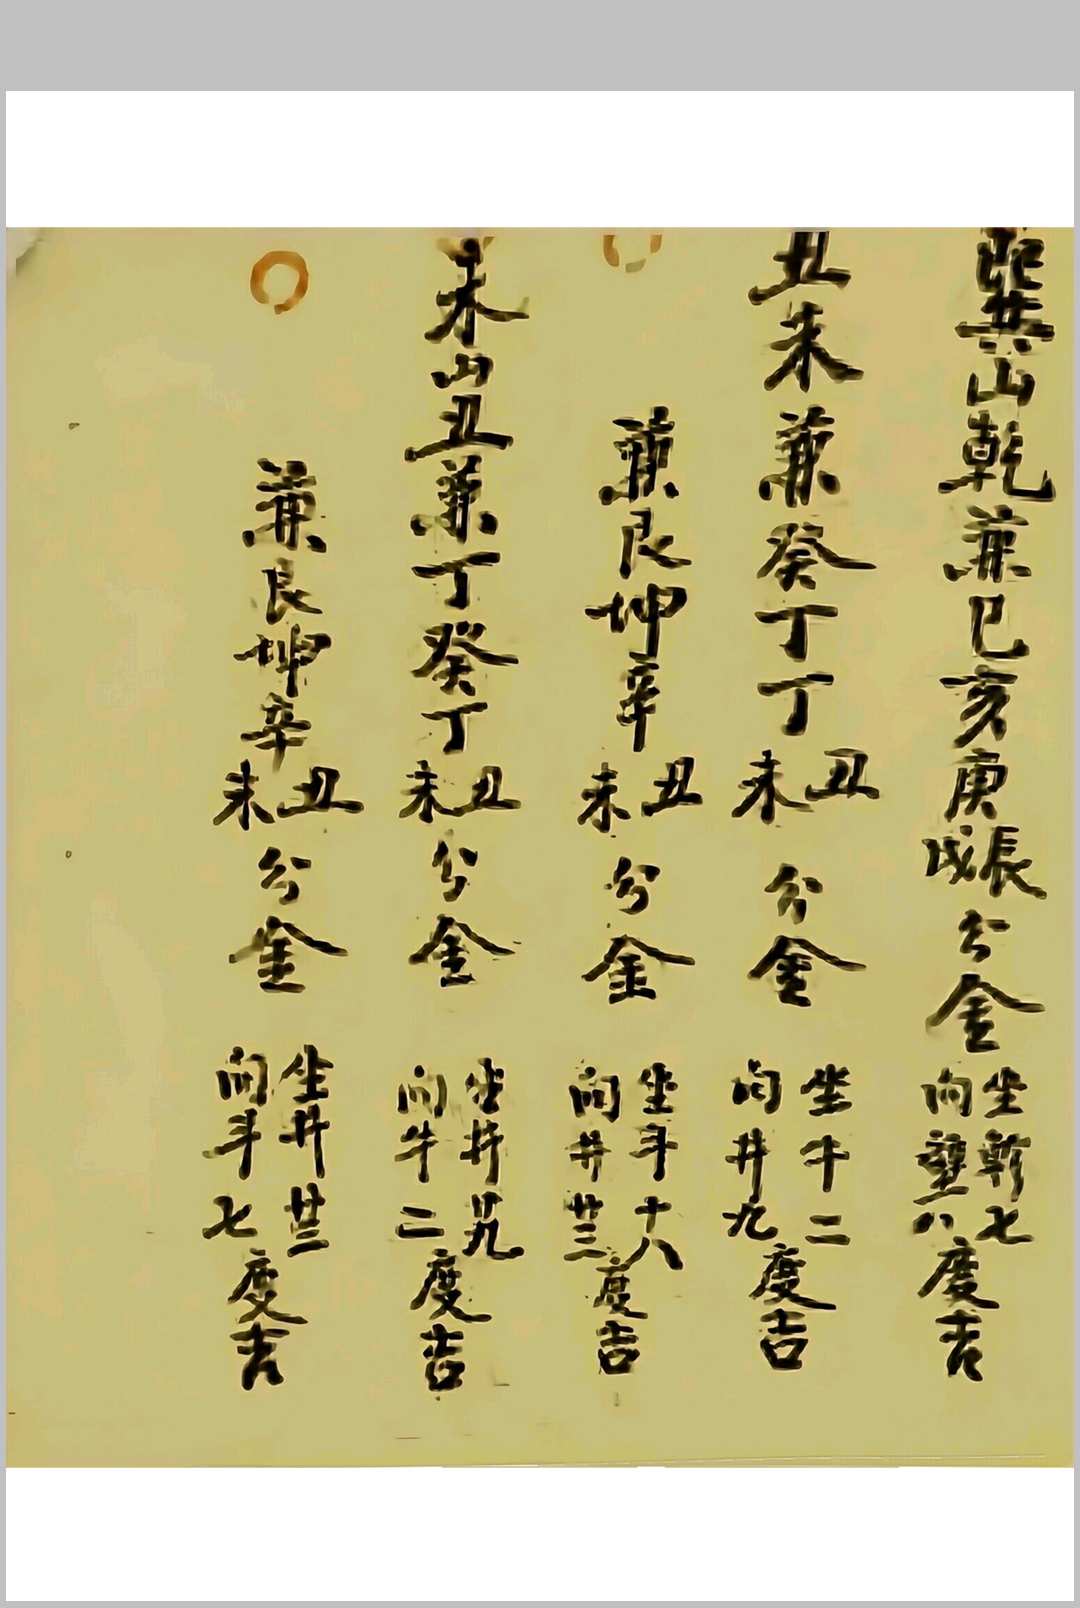 巽山乾兼巳亥庚戌辰分金坐軫七向壁八度吉
丑未兼癸丁丁丑未分金坐牛二向井九度吉
兼艮坤辛丑未分金坐斗十八向井廿三度吉
未山丑兼丁癸丁丑未分金坐井廿九向牛二度吉
兼艮坤辛丑未分金坐井廿三向斗七度吉